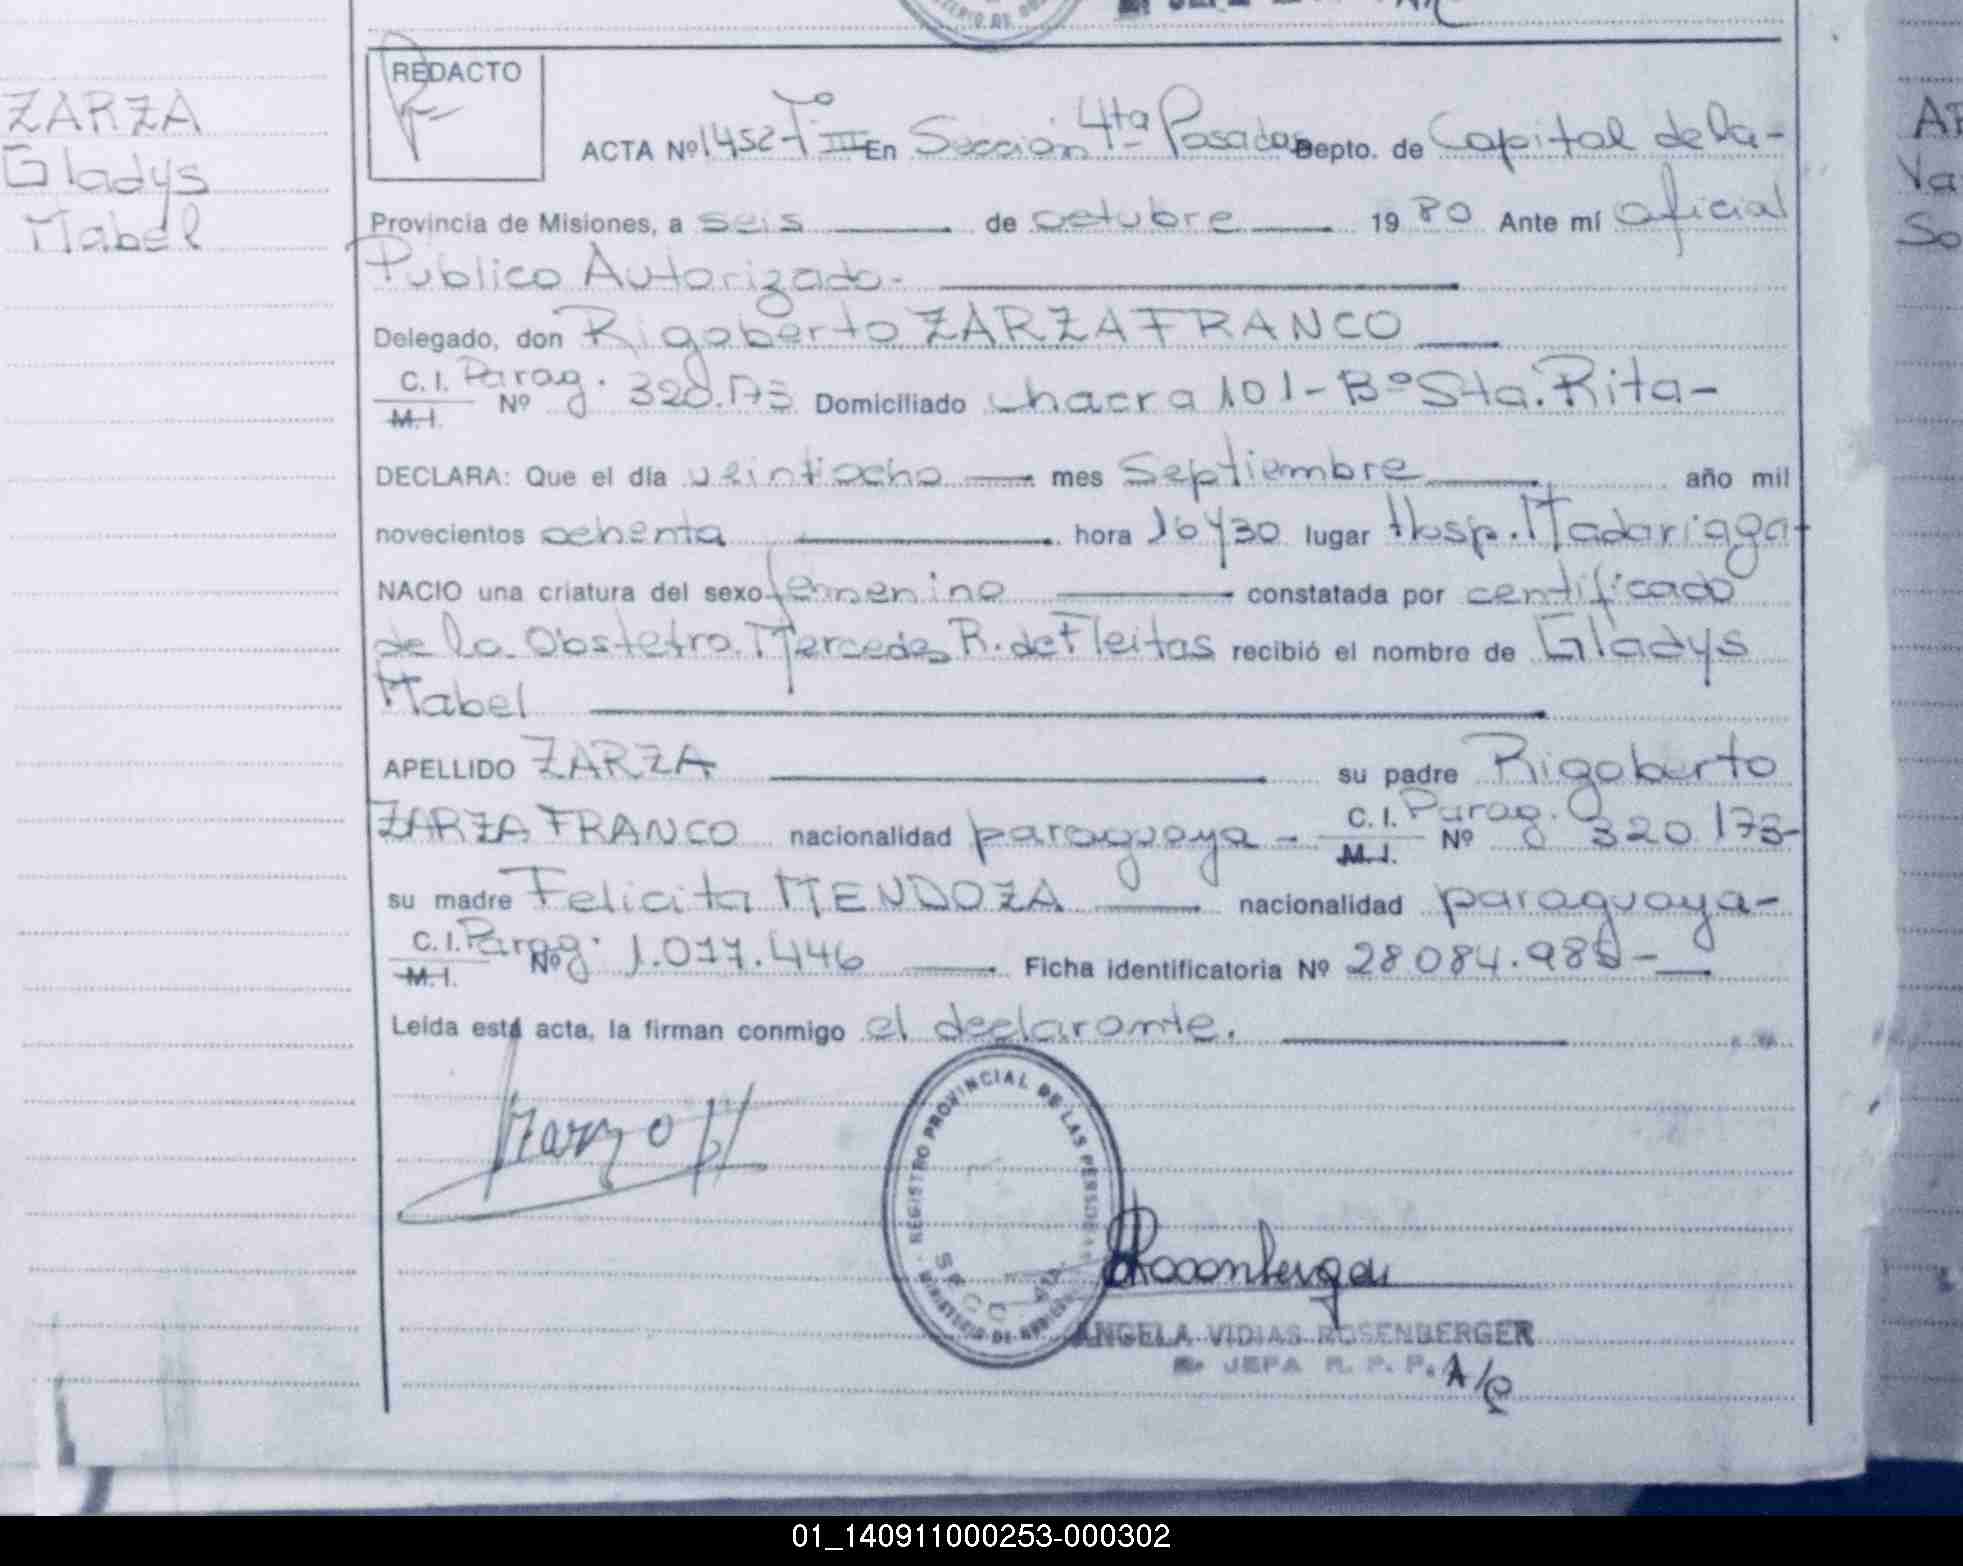 ZARZA
Gladys
Mabel
REDACTO
ACTA Nº 1452 Tº III En Sección 4ta Posadas Depto. de Capital de la-
Provincia de Misiones, a seis de octubre 1980 Ante mí oficial
Publico Autorizado.-
Delegado, don Rigoberto ZARZA FRANCO
C.I. Parag. Nº 320.173 Domiciliado chacra 101- Bº Sta. Rita-
M.I.
DECLARA: Que el día veintiocho mes Septiembre año mil
novecientos ochenta hora 16y30 lugar Hosp. Madariaga-
NACIO una criatura del sexo femenino constatada por certificado
de la Obstetra. Mercedes R. de Fleitas recibió el nombre de Gladys
Mabel
APELLIDO ZARZA su padre Rigoberto
ZARZA FRANCO nacionalidad paraguaya - C.I. Parag. Nº 320.173-
M.I.
su madre Felicita MENDOZA nacionalidad paraguaya-
C.I. Parag. Nº 1.017.446 Ficha identificatoria Nº 28084.985-
M.I.
Leída está acta, la firman conmigo el declarante.
REGISTRO PROVINCIAL DE LAS PERSONAS
SECC 4ta.
MINISTERIO DE GOBIERNO
ANGELA VIDIAS ROSENBERGER
JEFA R. P. P. A/C
AR
Va
So
01_140911000253-000302